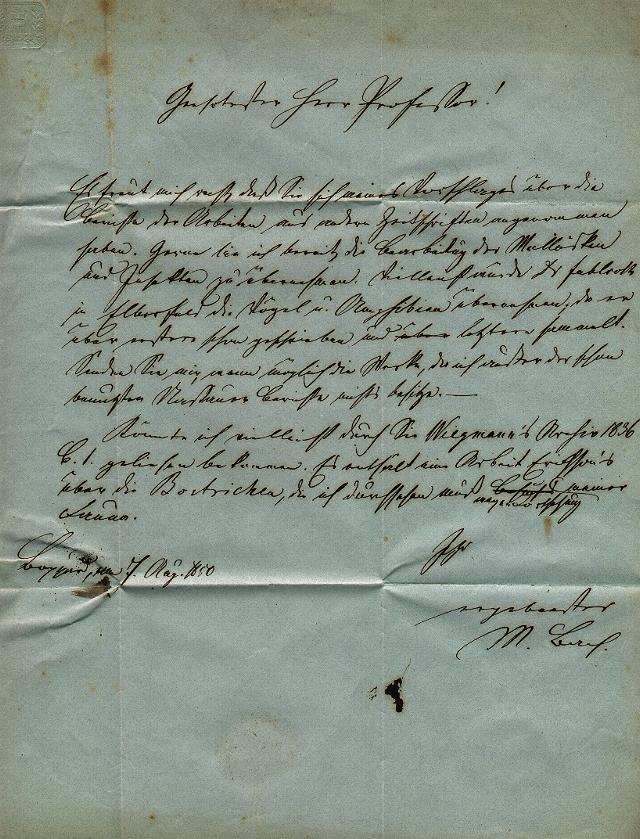 Geehrtester Herr Professor!
Es freut mich recht, daß Sie sich meines Vorschlages über die
Berichte der Arbeiten aus andern Zeitschriften angenommen
haben. Gerne bin ich bereit die Bearbeitung der Mollusken
und Insekten zu übernehmen. Vielleicht würde Dr Fuhlrott
in Elberfeld die Vögel u. Amphibien übernehmen, da er
über erstere schon geschrieben und über letztere sammelt.
Senden Sie mir, wenn möglich die Werke, da ich außer der schon
benutzten Nassauer Berichte nichts besitze. —
Könnte ich vielleicht durch Sie Wiegmann's Archiv 1836
B. 1. geliehen bekommen. Es enthält eine Arbeit Erichson's
über die Bostrichen, die ich durchsehen muß meiner
Fauna.
Boppard, den 7. Aug. 1850
Ihr
ergebenster
M. Bach.